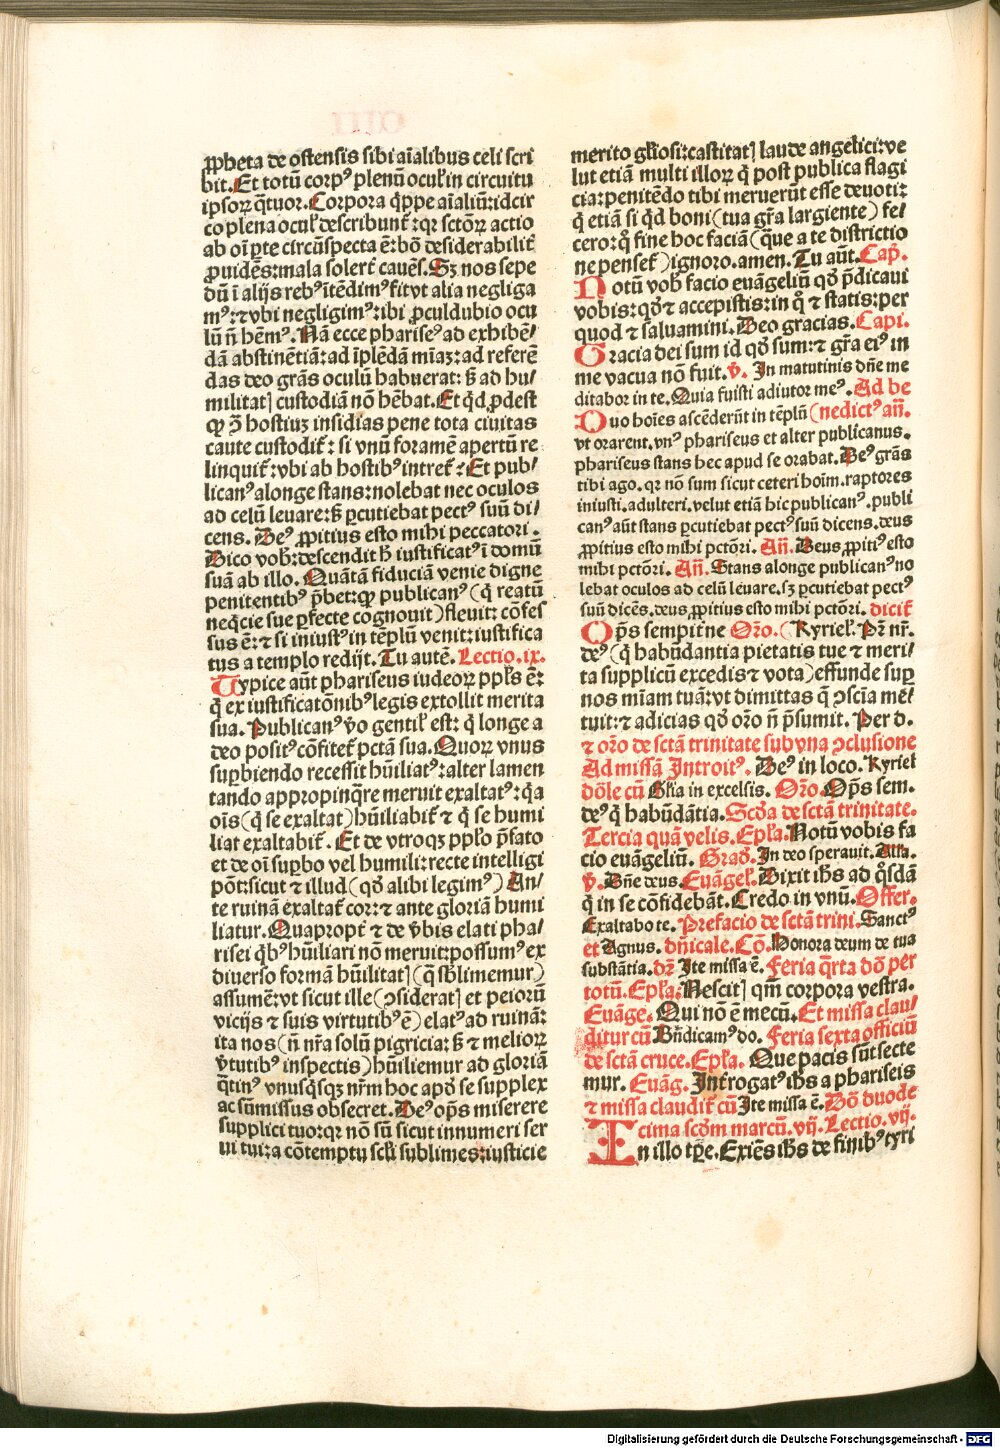 ꝓpheta de ostensis sibi aīalibus celi scri
bit. Et totū corpꝰ plenū oculꝭ in circuitu
ipsoꝝ q̄tuor. Corpora q̇ppe aīaliū: idcir
co plena oculꝭ describunt᷑: qꝛ sctōꝝ actio
ab oī ꝑte circūspecta ē: bō desiderabilit᷑
ꝓuidēs: mala solert᷑ cauēs. Sꝫ nos sepe
dū ī alijs rebꝰ ītēdimꝰ fit vt alia negliga
mꝰ: ⁊ vbi negligimꝰ: ibi ꝓculdubio ocu
lū ñ hēmꝰ. Nā ecce phariseꝰ ad exhibē/
dā abstinētiā: ad īplēdā mīaꝫ: ad referē
das deo grās oculū habuerat: ß ad hu/
militatꝭ custodiā nō hēbat. Et q̇d ꝓdest
ꝙ ꝯ̄ hostiuꝫ insidias pene tota ciuitas
caute custodit᷑: si vnū foramē apertū re
linquit᷑: vbi ab hostibꝰ intret᷑: Et pub/
licanꝰ alonge stans: nolebat nec oculos
ad celū leuare: ß ꝑcutiebat pectꝰ suū di/
cens. Deꝰ ꝓpitius esto mihi peccatori.
Dico vob᷑: descendit hꝭ iustificatꝰ ī domū
suā ab illo. Quātā fiduciā venie digne
penitentibꝰ p̄bet: ꝙ publicanꝰ (q̇ reatū
neq̄cie sue ꝑfecte cognouit) fleuit: cōfes
sus ē: ⁊ si iniustꝰ in tēplū venit: iustifica
tus a templo redijt. Tu autē. Lectio. ix.
Typice aūt phariseus iudeoꝝ ppl̄s ē:
q̇ ex iustificatōnibꝰ legis extollit merita
sua. Publicanꝰ v̄o gentilꝭ est: q̇ longe a
deo positꝰ cōfitet᷑ pctā sua. Quoꝝ vnus
suꝑbiendo recessit hūiliatꝰ: alter lamen
tando appropinq̄re meruit exaltatꝰ: q̇a
oīs (q̇ se exaltat) hūiliabit᷑ ⁊ q̇ se humi
liat exaltabit᷑. Et de vtroqꝫ ppl̄o p̄fato
et de oī suꝑbo vel humili: recte intelligi
pōt: sicut ⁊ illud (qd̄ alibi legimꝰ) An/
te ruinā exaltat᷑ cor: ⁊ ante gloriā humi
liatur. Quapropt᷑ ⁊ de v̄bis elati pha/
risei q̇bꝰ hūiliari nō meruit: possumꝰ ex
diuerso formā hūilitatꝭ (q̄ sb̄limemur)
assumē: vt sicut ille (ꝯsideratꝭ et peioꝝ
vicijs ⁊ suis virtutibꝰ ē) elatꝰ ad ruinā:
ita nos (ñ nr̄a solū pigricia: ß ⁊ melioꝝ
v̄tutibꝰ inspectis) hūiliemur ad gloriā
q̄tinꝰ vnusq̇sqꝫ nr̄m hoc apd̄ se supplex
ac sūmissus obsecret. Deꝰ op̄s miserere
supplici tuo: qꝛ nō sū sicut innumeri ser
ui tui: a cōtemptu scl̄i sublimes: iusticie
merito gl̄iosi: castitatꝭ laude angelici: ve
lut etiā multi illoꝝ q̇ post publica flagi
cia: penitēdo tibi meruerūt esse deuoti:
q̇ etiā si q̇d boni (tua gr̄a largiente) fe/
cero: q̊ fine hoc faciā (q̄ue a te districtio
ne penset᷑) ignoro. amen. Tu aūt. Cap̄.
Notū vob᷑ facio euāgeliū qd̄ p̄dicaui
vobis: qd̄ ⁊ accepistis: in q̊ ⁊ statis: per
quod ⁊ saluamini. Deo gracias. Capi.
Gracia dei sum id qd̄ sum: ⁊ gr̄a eiꝰ in
me vacua nō fuit. v̄. In matutinis dn̄e me
ditabor in te. Quia fuisti adiutor meꝰ. Ad be
Duo hoīes ascēderūt in tēplū (nedictꝰ añ.
vt orarent. vnꝰ phariseus et alter publicanus.
phariseus stans hec apud se orabat. Deꝰ grās
tibi ago. qꝛ nō sum sicut ceteri hoīm. raptores
iniusti. adulteri. velut etiā hic publicanꝰ. publi
canꝰ aūt stans ꝑcutiebat pectꝰ suū dicens. deus
ꝓpitius esto mihi pctōri. Añ. Deus ꝓpitiꝰ esto
mihi pctōri. Añ. Stans alonge publicanꝰ no
lebat oculos ad celū leuare. sꝫ ꝑcutiebat pectꝰ
suū dicēs. deus ꝓpitius esto mihi pctōri. dicit᷑
Op̄s sempit᷑ne Oro. (Kyriel᷑. Pr̄ nr̄.
deꝰ (q̇ habūdantia pietatis tue ⁊ meri/
ta supplicū excedis ⁊ vota) effunde suꝑ
nos mīam tuā: vt dimittas q̄ ꝯscīa me/
tuit: ⁊ adicias qd̄ oro ñ p̄sumit. Per d.
⁊ oro de sctā trinitate sub vna ꝯclusione
Ad missā Introitꝰ. Deꝰ in loco. Kyriel
dōle cū Gl̄ia in excelsis. Oro. Op̄s sem.
deꝰ q̇ habūdātia. Scd̄a de sctā trinitate.
Tercia quā velis. Epl̄a. Notū vobis fa
cio euāgeliū. Grad᷑. In deo sperauit. Alla.
v̄. Dn̄e deus. Euāgel᷑. Dixit ih̄s ad q̊sdā
q̇ in se cōfidebāt. Credo in vnū. Offer.
Exaltabo te. Prefacio de sctā trini. Sanctꝰ
et Agnus. dn̄icale. Cō. Honora deum de tua
substātia. dꝛ Ite missa ē. Feria q̄rta dō per
totū. Epl̄a: Nescitꝭ qm̄ corpora vestra.
Euāge. Qui nō ē mecū. Et missa clau/
ditur cū Bn̄dicamꝰ do. Feria sexta officiū
de sctā cruce. Epl̄a. Que pacis sūt secte
mur. Euāg. Introgatꝰ ih̄s a phariseis
⁊ missa claudit᷑ cū Ite missa ē. Dō duode
cima scd̄m marcū. vij. Lectio. vij.
In illo tp̄e. Exiēs ih̄s de finibꝰ tyri
Digitalisierung gefördert durch die Deutsche Forschungsgemeinschaft - DFG